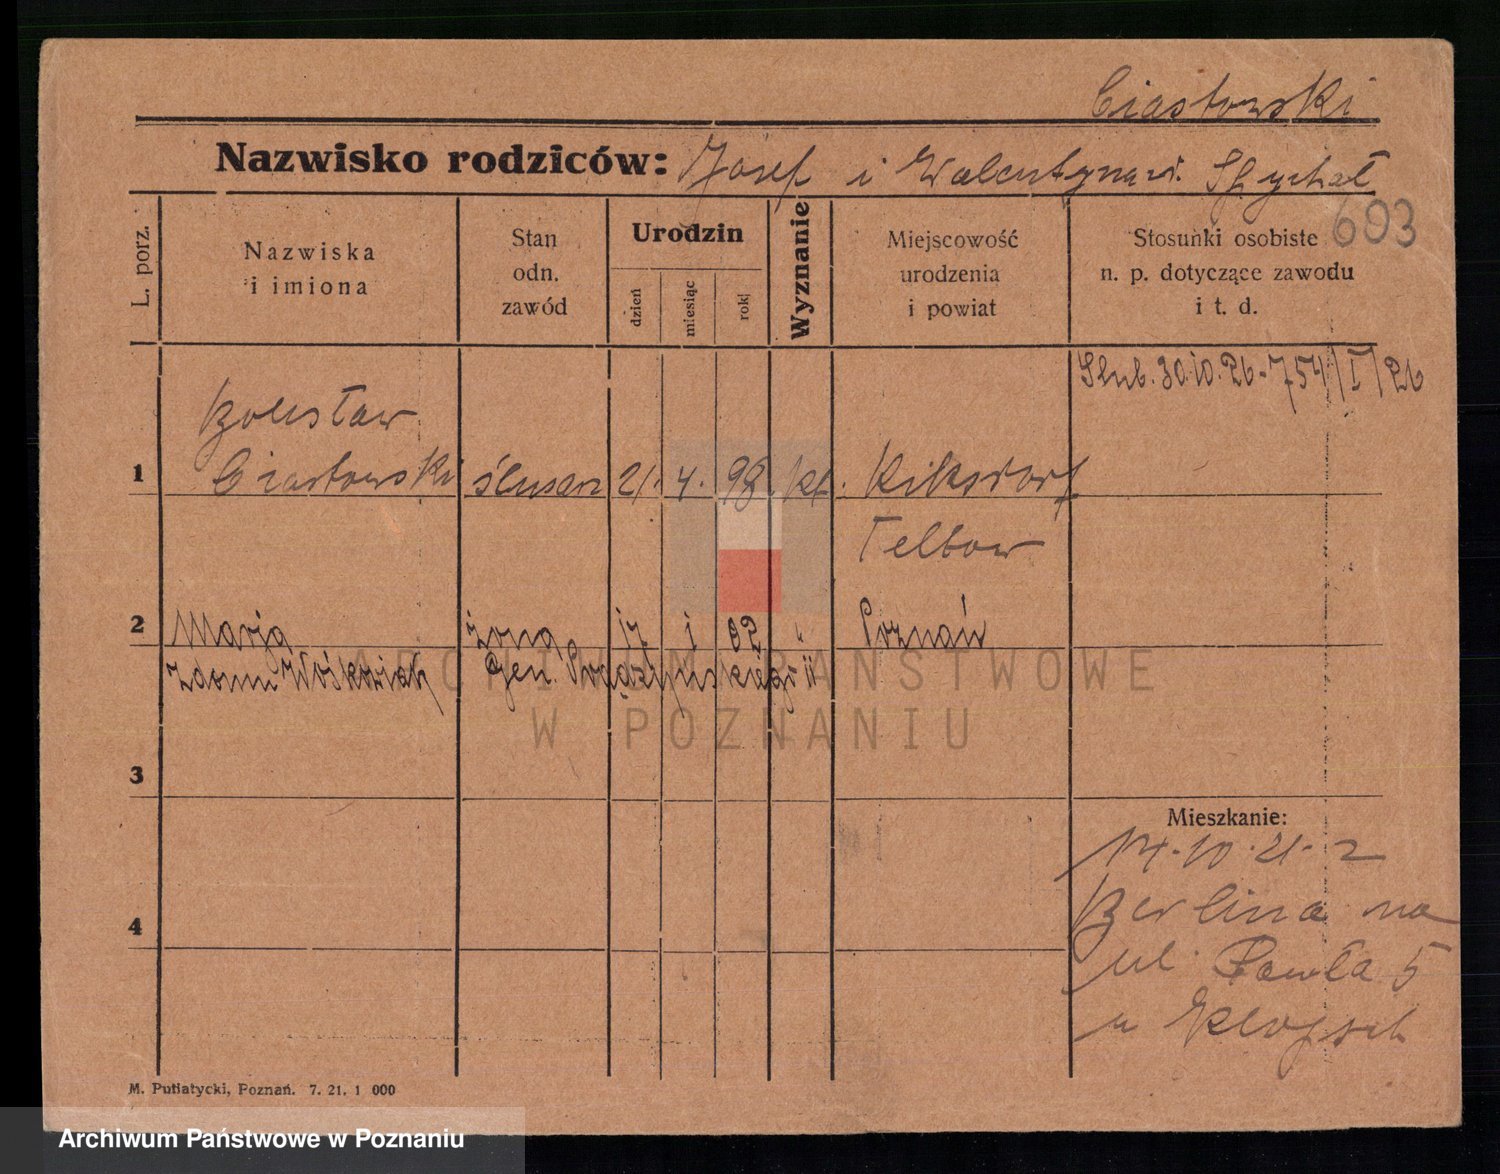 Ciastowski
Nazwisko rodziców: Józef i Walentyna z d. Spychał
603
L. porz.
Nazwiska
i imiona
Stan
odn.
zawód
Urodzin
dzień
miesiąc
rok
Wyznanie
Miejscowość
urodzenia
i powiat
Stosunki osobiste
n. p. dotyczące zawodu
i t. d.
Slub. 30.10.26 - 754/I/26
Bolesław
1 Ciastowski ślusarz 21. 4. 98 kt. Riksdorf
Teltow
2 Marja żona 17 1 02 " Poznań
z domu Wośkowiak Gen. Prądzyńskiego 11
3
Mieszkanie:
14.10.21. z
4
Berlina na
ul. Pawła 5
u
M. Putiatycki, Poznań. 7. 21. 1 000
ARCHIWUM PAŃSTWOWE
W POZNANIU
Archiwum Państwowe w Poznaniu